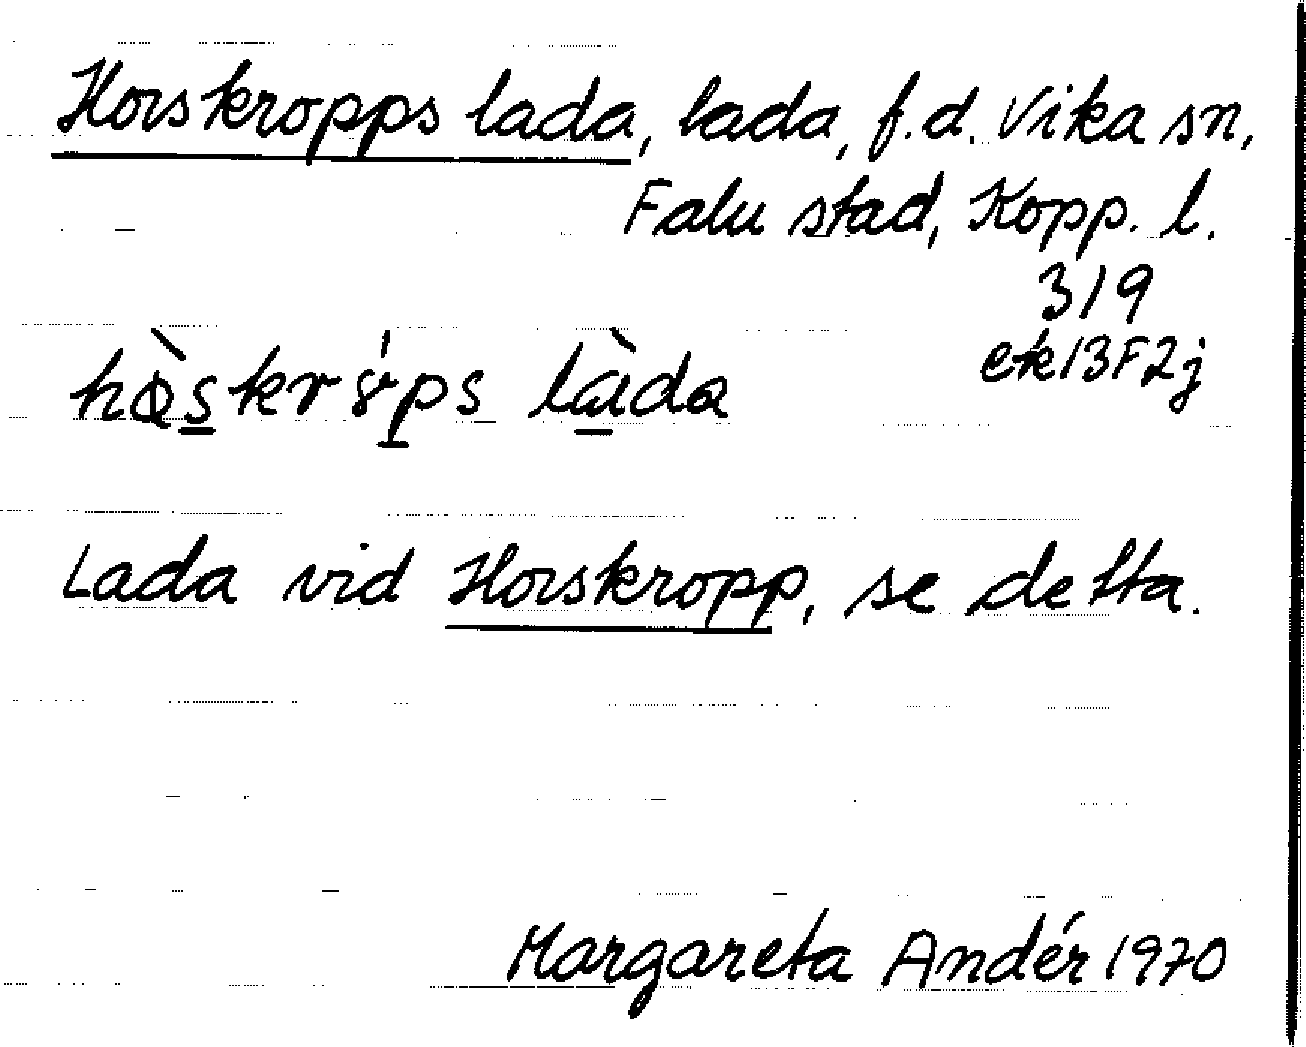 Horskropps lada, lada, f.d. Vika sn,
Falu stad, Kopp. l.
319
ek 13F2j
Lada vid Horskropp, se detta.
Margareta Andér 1970